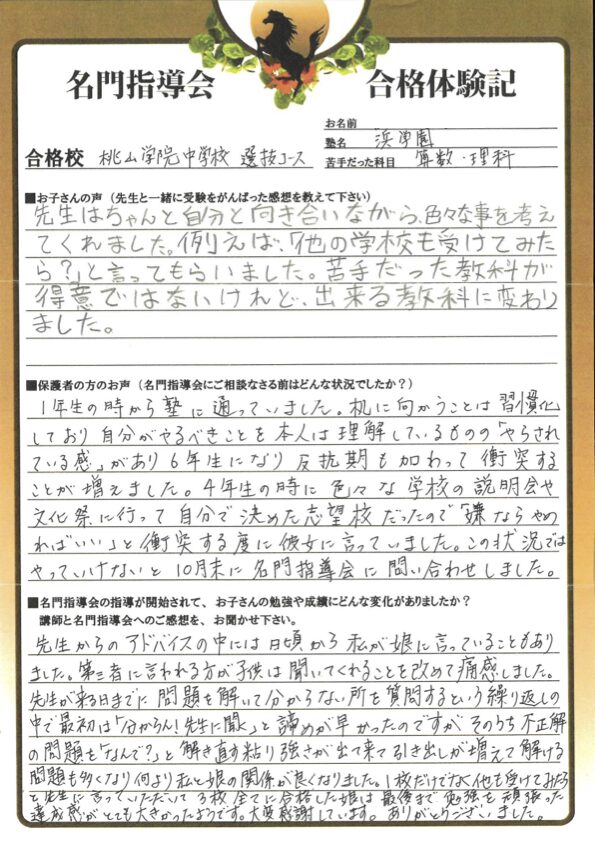 名門指導会 合格体験記
お名前
塾名 浜学園
合格校 桃山学院中学校 選抜コース
苦手だった科目 算数・理科
■お子さんの声（先生と一緒に受験をがんばった感想を教えて下さい）
先生はちゃんと自分と向き合いながら、色々な事を考え
てくれました。例えば、「他の学校も受けてみた
ら？」と言ってもらいました。苦手だった教科が
得意ではないけれど、出来る教科に変わり
ました。
■保護者の方のお声（名門指導会にご相談なさる前はどんな状況でしたか？）
1年生の時から塾に通っていました。机に向かうことは習慣化
しており自分がやるべきことを本人は理解しているものの「やらされ
ている感」があり6年生になり反抗期も加わって衝突する
ことが増えました。4年生の時に色々な学校の説明会や
文化祭に行って自分で決めた志望校だったので「嫌ならやめ
ればいい」と衝突する度に彼女に言っていました。この状況では
やっていけないと10月末に名門指導会に問い合わせしました。
■名門指導会の指導が開始されて、お子さんの勉強や成績にどんな変化がありましたか？
講師と名門指導会へのご感想を、お聞かせ下さい。
先生からのアドバイスの中には日頃から私が娘に言っていることもあり
ました。第三者に言われる方が子供は聞いてくれることを改めて痛感しました。
先生が来る日までに問題を解いて分からない所を質問するという繰り返しの
中で最初は「分からん！先生に聞く」と諦めが早かったのですがそのうち不正解
の問題も「なんで？」と解き直す粘り強さが出て来て引き出しが増えて解ける
問題も多くなり何より私と娘の関係が良くなりました。1校だけでなく他も受けてみたら
と先生に言っていただいて3校全てに合格した娘は最後まで勉強を頑張った
達成感がとても大きかったようです。大変感謝しています。ありがとうございました。